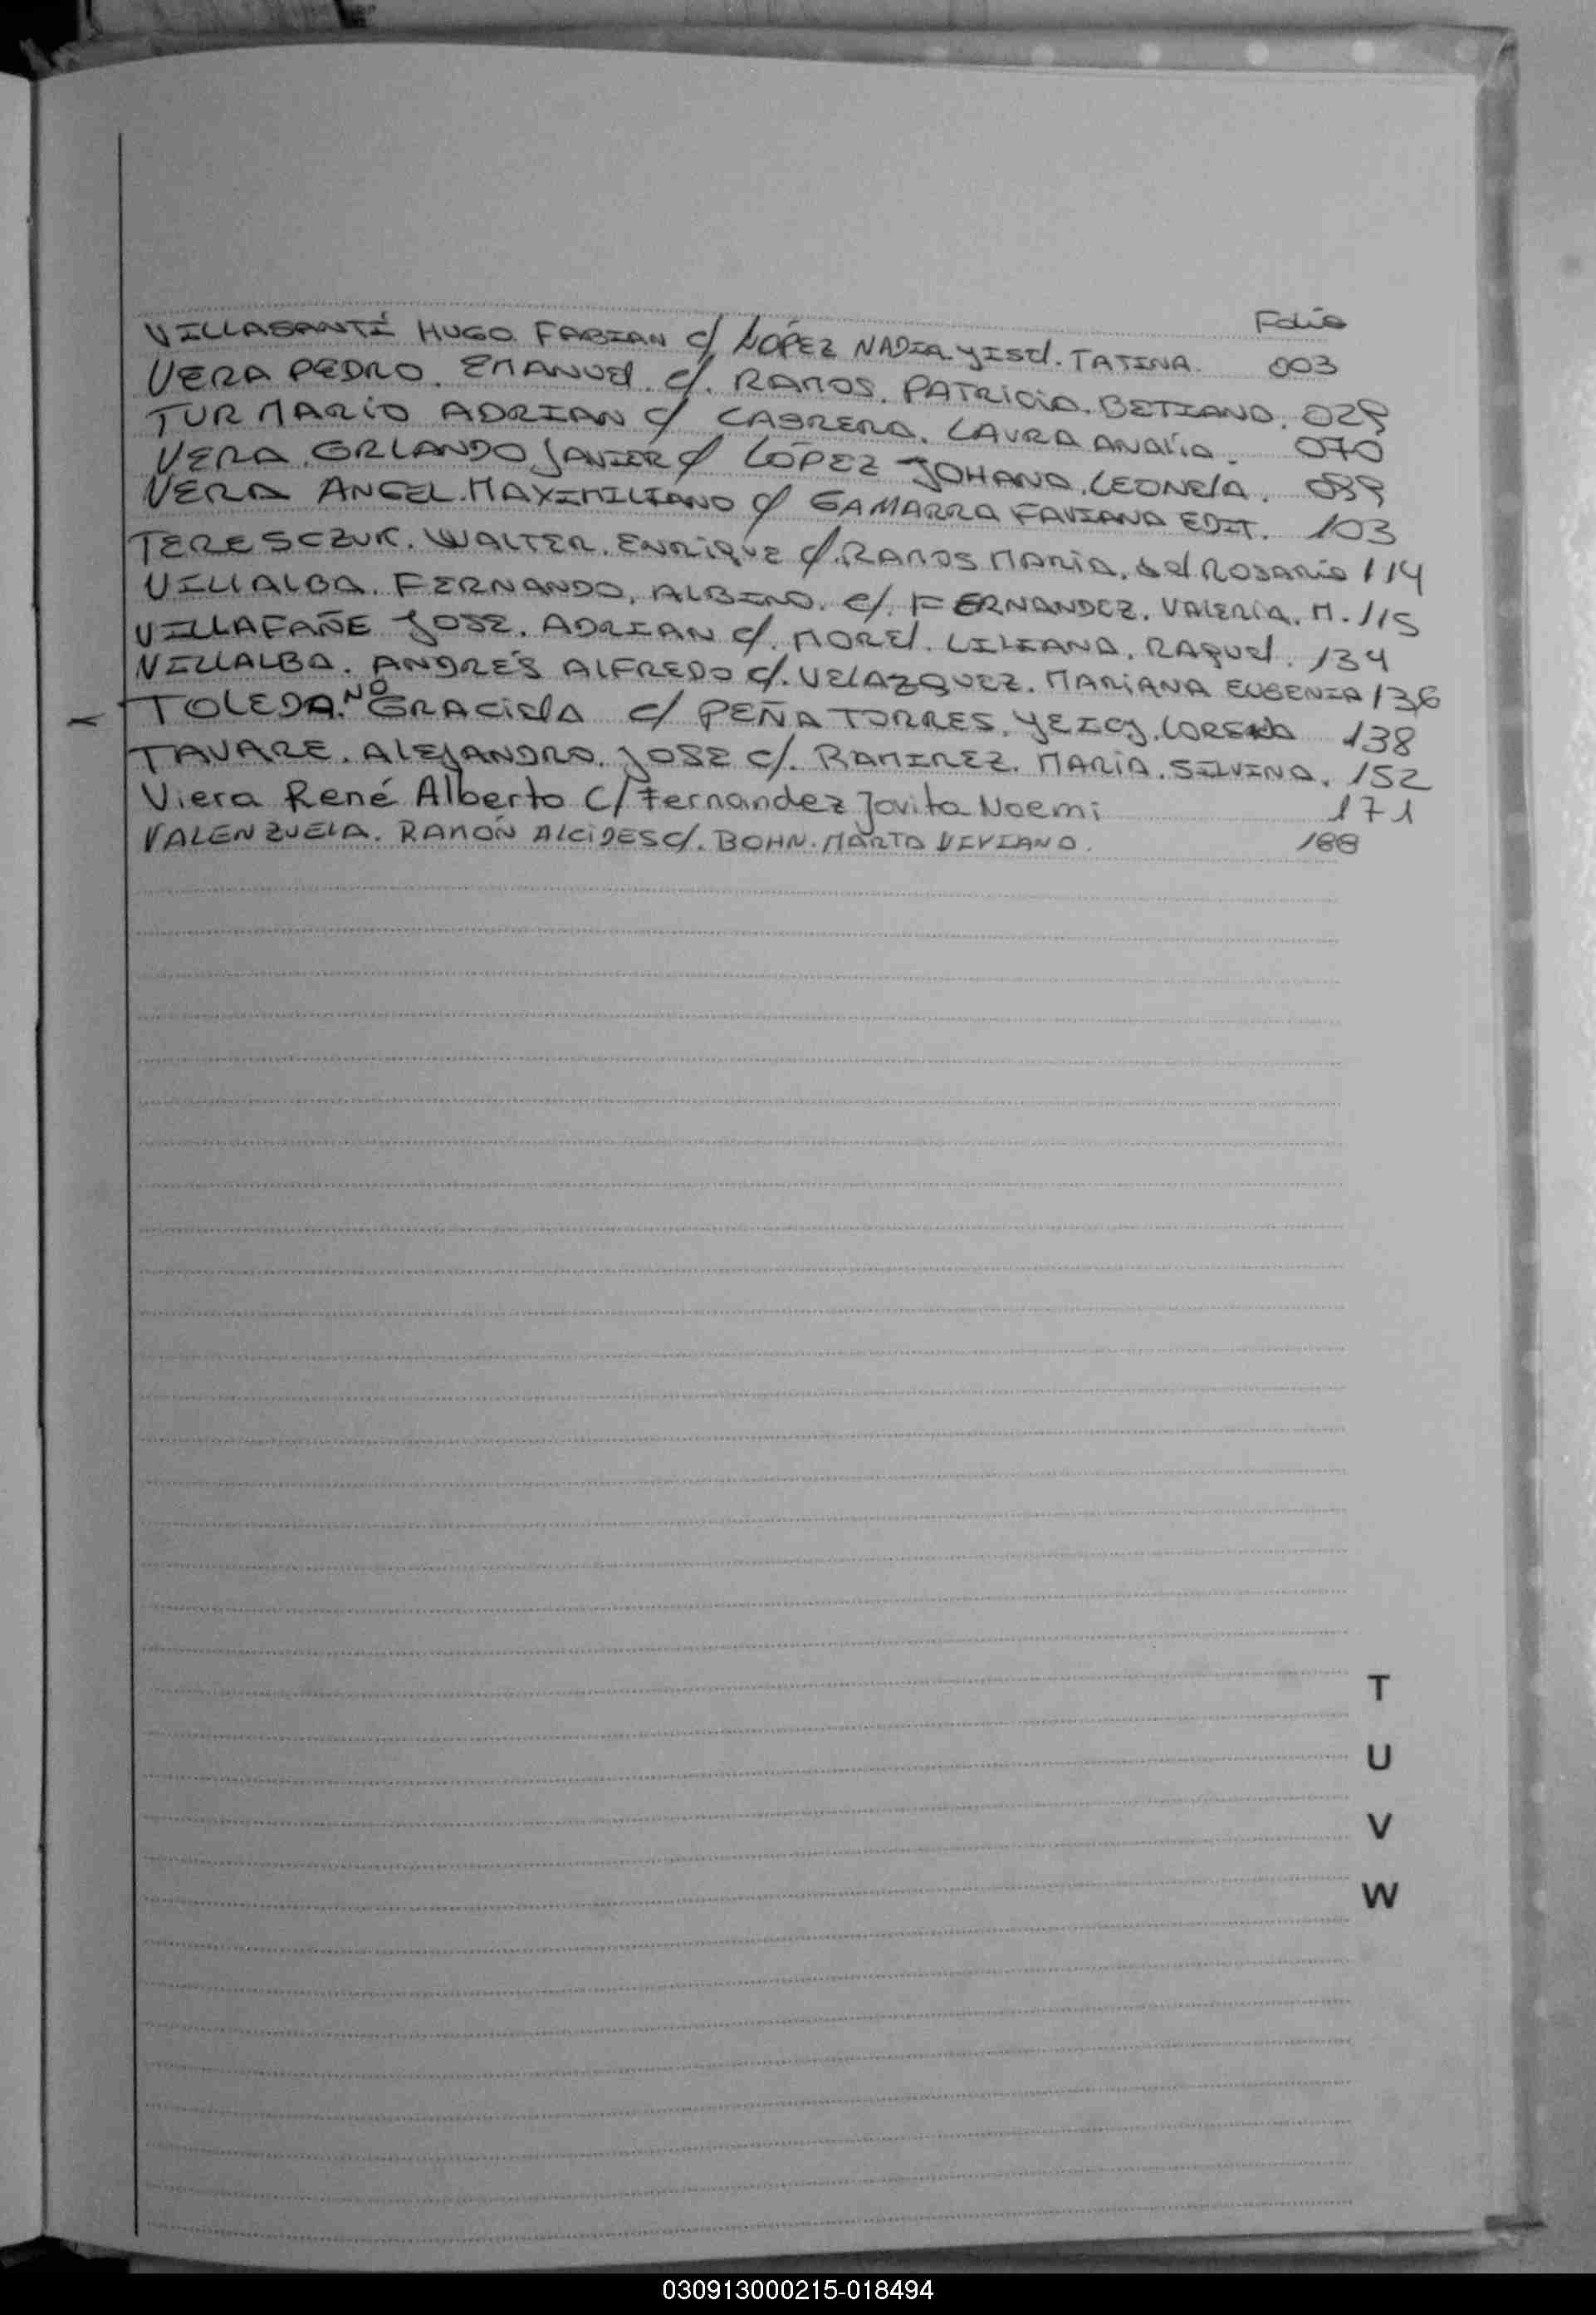 Folio
VILLASANTÍ HUGO FABIAN c/ LÓPEZ NADIA YISEL. TATINA. 003
VERA PEDRO. EMANUEL. c/. RAMOS. PATRICIA. BETIANA. 029
TUR MARIO ADRIAN c/ CABRERA. LAURA ANALÍA. 070
VERA. ORLANDO JAVIER c/ LÓPEZ JOHANA. LEONELA. 089
VERA ANGEL. MAXIMILIANO c/ GAMARRA FAVIANA EDIT. 103
TERESCZUK. WALTER. ENRIQUE c/. RAMOS MARIA. del ROSARIO 114
VILLALBA. FERNANDO. ALBINO. c/. FERNANDEZ. VALERIA. M. 115
VILLAFAÑE JOSE. ADRIAN c/. MOREL. LILIANA. RAQUEL. 134
VILLALBA. ANDRÉS ALFREDO c/. VELAZQUEZ. MARIANA EUGENIA 136
TOLEDA.NO GRACIELA c/ PEÑA TORRES. YEICY. LORENA 138
TAVARE. ALEJANDRO. JOSE c/. RAMIREZ. MARIA. SILVINA. 152
Viera René Alberto C/ Fernandez Jovita Noemi 171
VALENZUELA. RAMÓN ALCIDES c/. BOHN. MARTA VIVIANA. 188
T
U
V
W
030913000215-018494